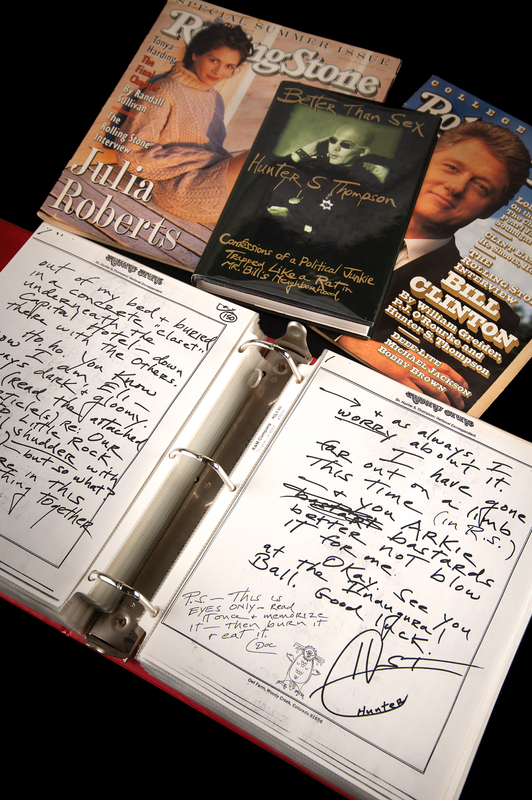 SPECIAL SUMMER ISSUE
RollingStone
Tonya
Harding
The
Final
By Randall
Sullivan
The
Rolling Stone
Interview
Julia
Roberts
Better Than Sex
Hunter S Thompson
Confessions of a Political Junkie
Trapped Like a Rat in
Mr. Bill's Neighborhood
COLLEGE
Ro
THE
ROLLING S
INTERVIEW
BILL
CLINTON
By William Greider,
P.J. O'Rourke and
Hunter S. Thompson
DEEE-LITE
MICHAEL JACKSON
BOBBY BROWN
out of my bed & buried
in a concrete "closet"
underneath the
Capital Hotel - down
there with the others.
to ho. You know
I am, Eli -
dark & gloomy
(read the attached
re: Our
Little Rock.
shudder with
- but so what?
re in this
thing together
DOC
K&M Company
→ & as always, I
worry about it.
I have gone
far out on a limb
this time (in R.S.)
- & you ARKie
bastards
better not blow
it for me.
Okay. See you
at the Inaugural
Ball. Good luck.
HST
Hunter
P.S. - This is
EYES ONLY - read
it once & memorize
it - then burn it
or eat it.
Doc
Owl Farm, Woody Creek, Colorado 81656